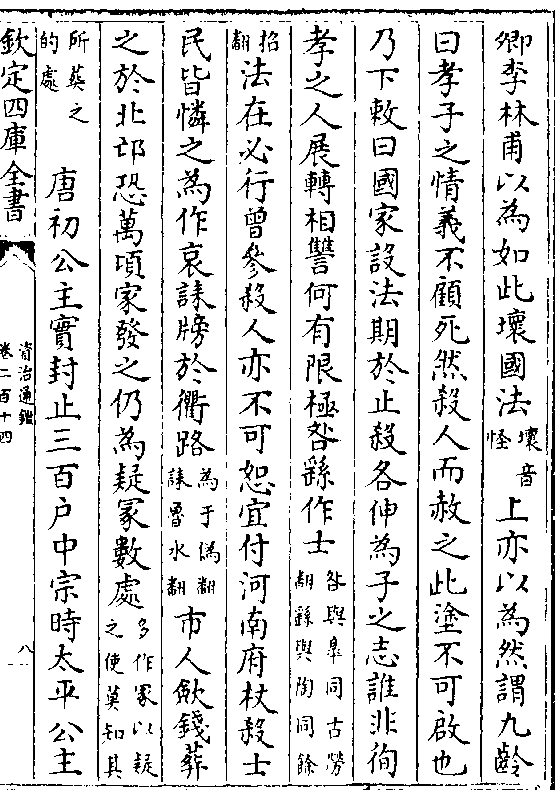 卿李林甫以為如此壞國法壞音怪上亦以為然謂九齡
曰孝子之情義不顧死然殺人而赦之此塗不可啟也
乃下敕曰國家設法期於止殺各伸為子之志誰非徇
孝之人展轉相讐何有限極咎繇作士咎與臯同古勞翻繇與陶同餘
招翻法在必行曾參殺人亦不可恕宜付河南府杖殺士
民皆憐之為作哀誄牓於衢路為于偽翻誄魯水翻市人斂錢葬
之於北邙恐萬頃家發之仍為疑冢數處多作冢以疑之使莫知其
所葬之的處 唐初公主實封止三百户中宗時太平公主
欽定四庫全書
資治通鑑
卷二百十四
八